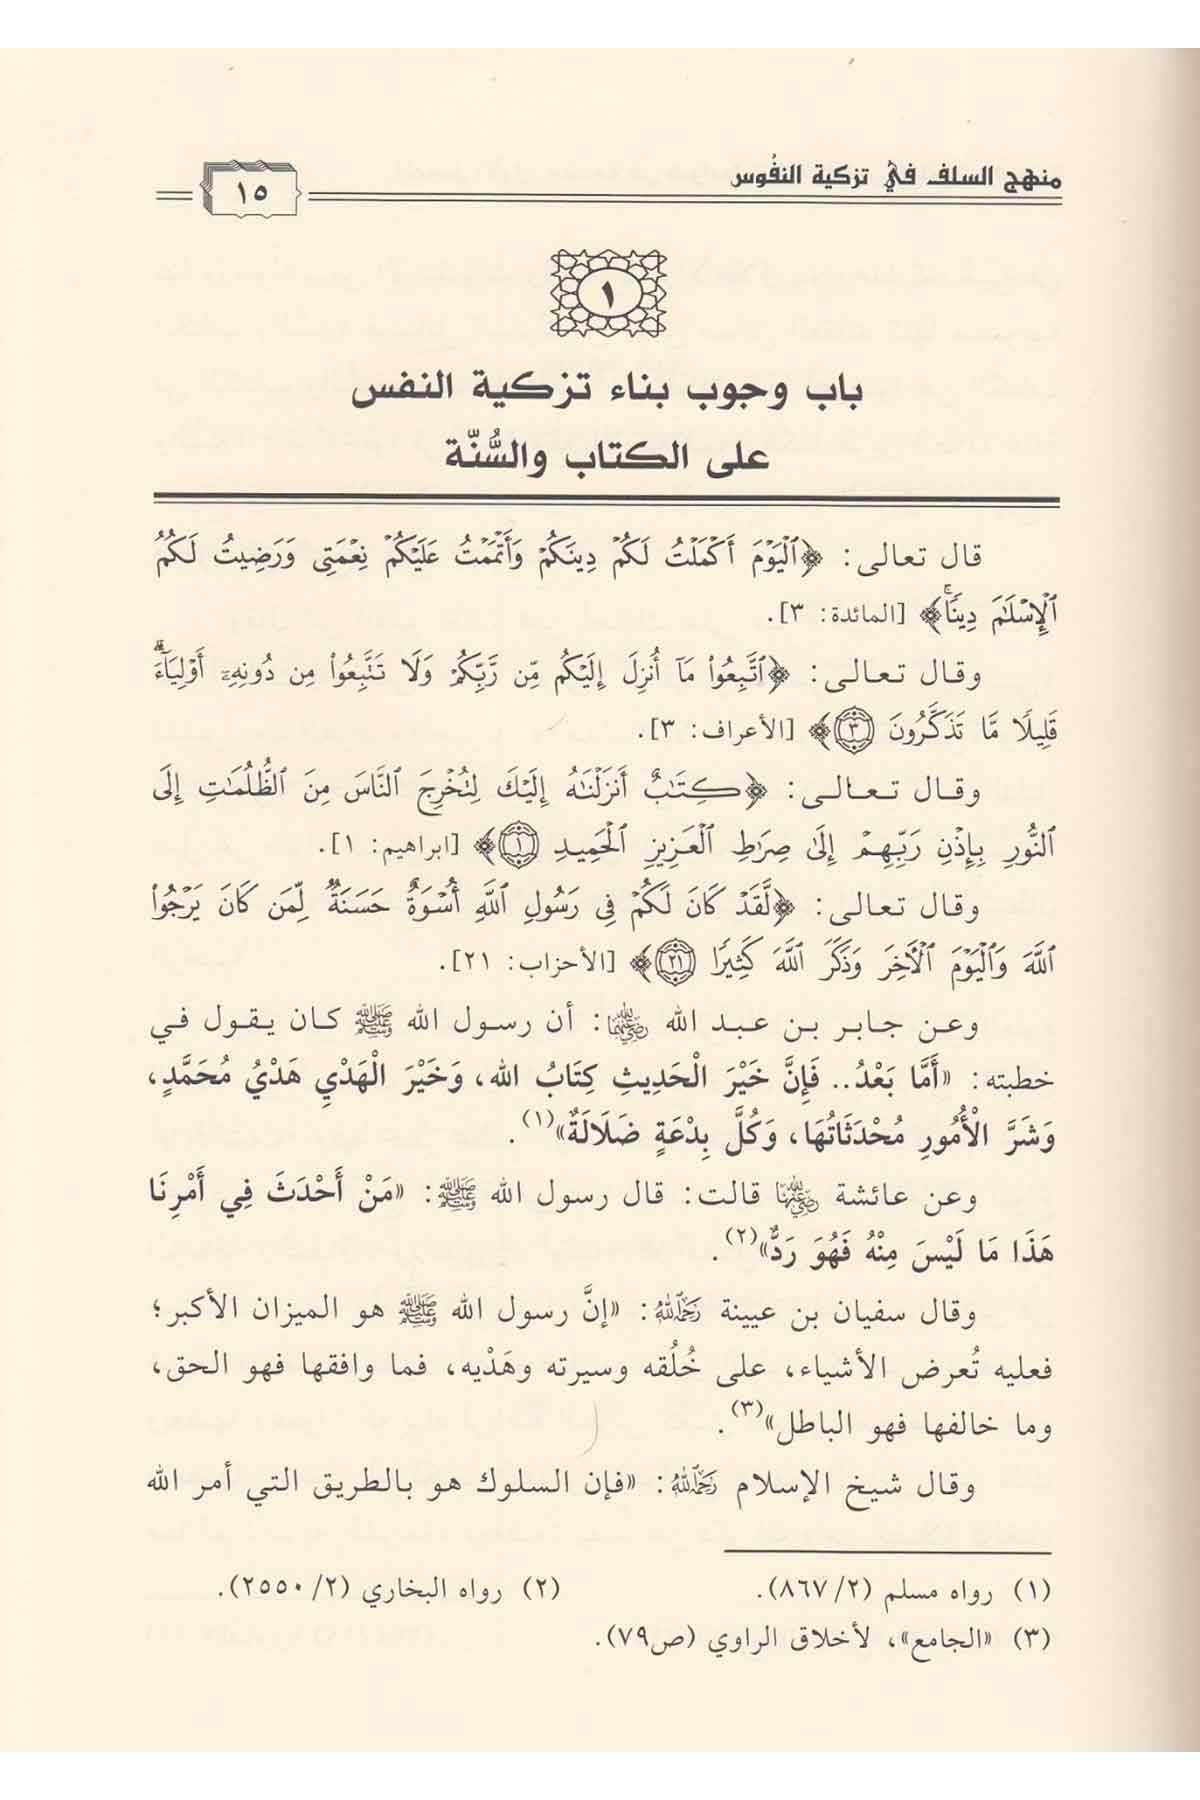 منهج السلف في تزكية النفُوس
١٥
١
باب وجوب بناء تزكية النفس
على الكتاب والسُّنّة
قال تعالى: ﴿ٱلۡيَوۡمَ أَكۡمَلۡتُ لَكُمۡ دِينَكُمۡ وَأَتۡمَمۡتُ عَلَيۡكُمۡ نِعۡمَتِي وَرَضِيتُ لَكُمُ
ٱلۡإِسۡلَٰمَ دِينٗاۚ﴾ [المائدة: ٣].
وقال تعالى: ﴿ٱتَّبِعُواْ مَآ أُنزِلَ إِلَيۡكُم مِّن رَّبِّكُمۡ وَلَا تَتَّبِعُواْ مِن دُونِهِۦٓ أَوۡلِيَآءَۗ
قَلِيلٗا مَّا تَذَكَّرُونَ ٣﴾ [الأعراف: ٣].
وقال تعالى: ﴿كِتَٰبٌ أَنزَلۡنَٰهُ إِلَيۡكَ لِتُخۡرِجَ ٱلنَّاسَ مِنَ ٱلظُّلُمَٰتِ إِلَى
ٱلنُّورِ بِإِذۡنِ رَبِّهِمۡ إِلَىٰ صِرَٰطِ ٱلۡعَزِيزِ ٱلۡحَمِيدِ ١﴾ [ابراهيم: ١].
وقال تعالى: ﴿لَّقَدۡ كَانَ لَكُمۡ فِي رَسُولِ ٱللَّهِ أُسۡوَةٌ حَسَنَةٞ لِّمَن كَانَ يَرۡجُواْ
ٱللَّهَ وَٱلۡيَوۡمَ ٱلۡأٓخِرَ وَذَكَرَ ٱللَّهَ كَثِيرٗا ٢١﴾ [الأحزاب: ٢١].
وعن جابر بن عبد الله رضي الله عنهما: أن رسول الله ﷺ كان يقول في
خطبته: «أَمَّا بَعْدُ.. فَإِنَّ خَيْرَ الْحَدِيثِ كِتَابُ الله، وَخَيْرَ الْهَدْيِ هَدْيُ مُحَمَّدٍ،
وَشَرَّ الْأُمُورِ مُحْدَثَاتُهَا، وَكُلَّ بِدْعَةٍ ضَلَالَةٌ»(١).
وعن عائشة رضي الله عنها قالت: قال رسول الله ﷺ: «مَنْ أَحْدَثَ فِي أَمْرِنَا
هَذَا مَا لَيْسَ مِنْهُ فَهُوَ رَدٌّ»(٢).
وقال سفيان بن عيينة رحمه الله: «إنَّ رسول الله ﷺ هو الميزان الأكبر؛
فعليه تُعرض الأشياء، على خُلُقه وسيرته وهَدْيه، فما وافقها فهو الحق،
وما خالفها فهو الباطل»(٣).
وقال شيخ الإسلام رحمه الله: «فإن السلوك هو بالطريق التي أمر الله
(١) رواه مسلم (٢/ ٨٦٧). (٢) رواه البخاري (٢/ ٢٥٥٠).
(٣) «الجامع»، لأخلاق الراوي (ص٧٩).